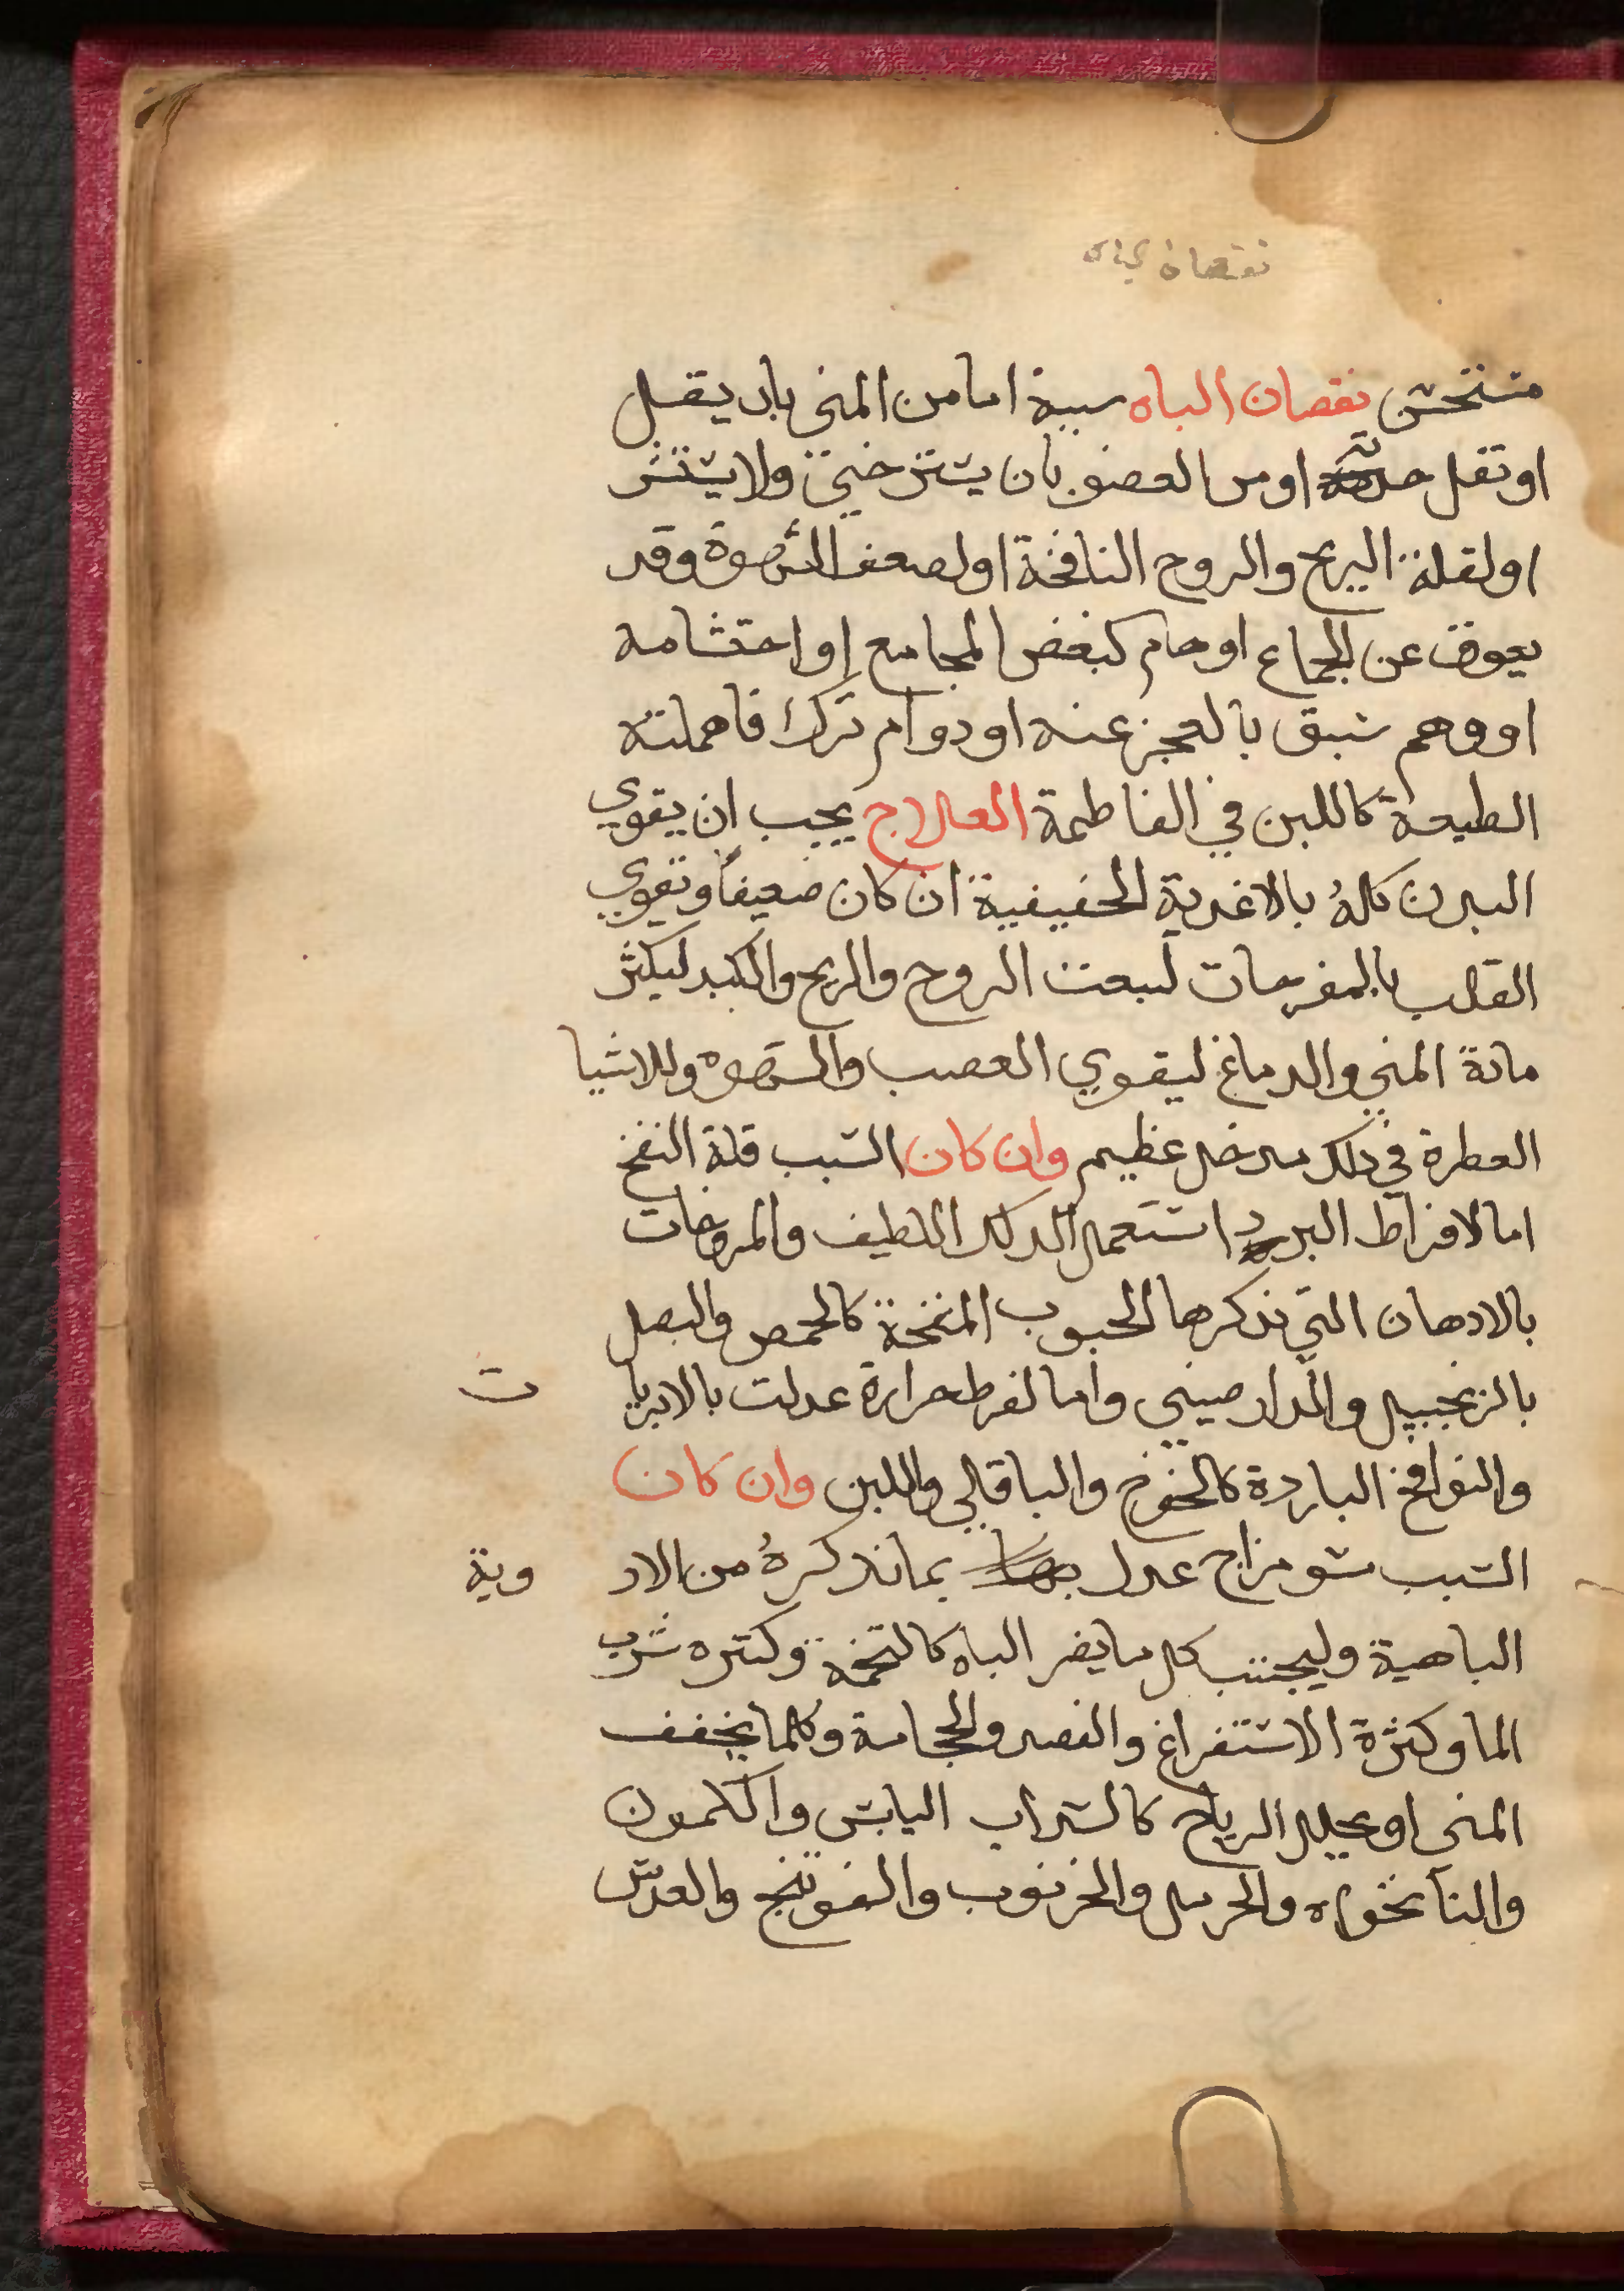 نقصان الباه
مستخشن نقصان الباه سببة امامن المني بان يقل
اوتقل حدته اومن العضو بان يسترخي ولا ينتشر
اولقلة الريح والروح النافخة اولضعف الشهوة وقد
يعوق عن الجماع اوهام كبغض المجامع او احتشامه
او وهم سبق بالعجز عنه او دوام ترك فاهملته
الطبيعة كاللبن في الفاطمة العلاج يجب ان يقوي
البدن كلهُ بالاغدية الحقيقية ان كان ضعيفاً وتقوي
القلب بالمفرحات لبيعث الروح والريح والكبد ليكثر
مادة المني والدماغ ليقوي العصب والشهوه وللاشيا
العطرة في ذلك مدخل عظيم وان كان السبب قلة النفخ
اما لافراط البرد استعمل الدلك اللطيف والمروخات
بالادهان التي نذكرها الحبوب المنفخة كالحمص والبصل
بالزنجبيل والدارصيني واما لفرط حرارة عدلت بالابزيا ت
والنوافخ الباردة كالخوخ والباقالي واللبن وان كان
السبب سو مزاج عدل بما نذكرهُ من الاد وية
الباهية وليجتنب كل ما يضر الباه كالتخمة وكثره شرب
الما وكثرة الاستفراغ والفصد والحجامة وكلما يجفف
المني او يحلل الرياح كالشراب اليابس والكمون
والنانخواه والحرمل والخرنوب والفوتنج والعدس